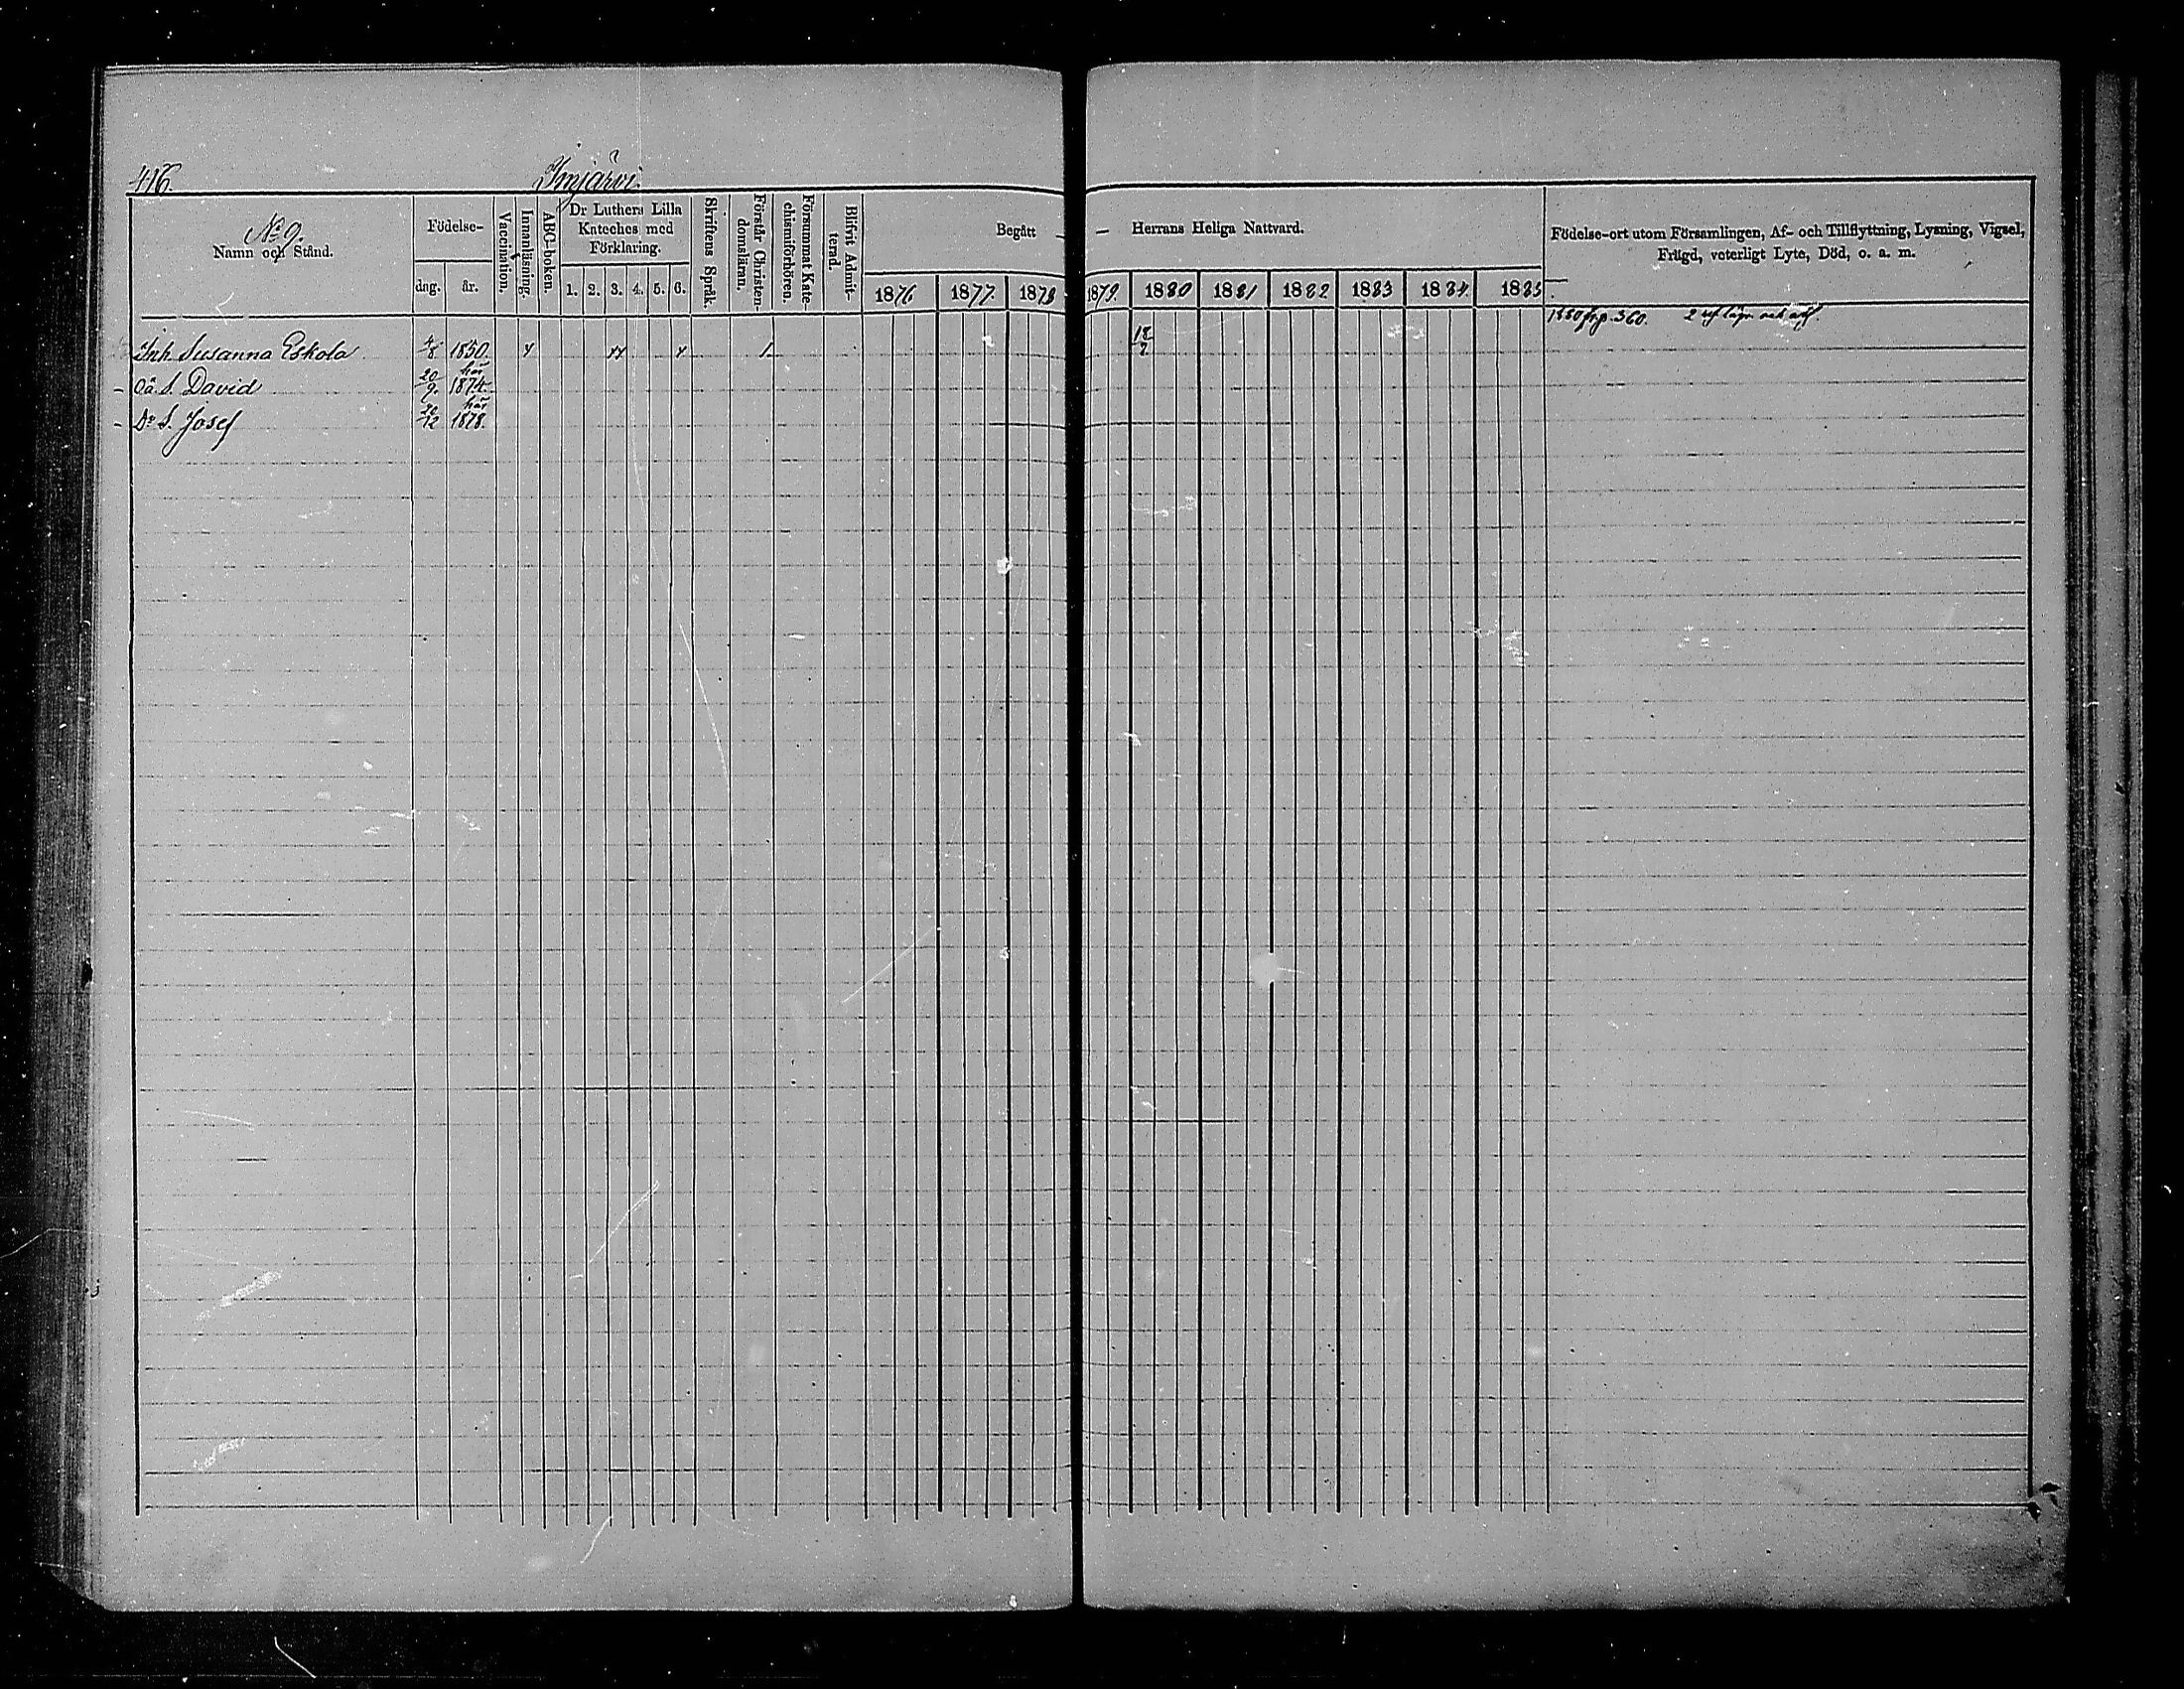 416.
Imjärvi
No 9.
Namn och Stånd.
Födelse-
dag. år.
Vaccination.
Innanläsning.
ABC-boken.
Dr Luthers Lilla
Kateches med
Förklaring.
1. 2. 3. 4. 5. 6.
Skriftens Språk.
Förstår Christen-
domsläran.
Försummat Kate-
chismiförhören.
Blifvit Admit-
terad.
Begått — — Herrans Heliga Nattvard.
1876 1877. 1878 1879. 1880 1881 1882 1883 1884. 1885
Födelse-ort utom Församlingen, Af- och Tillflyttning, Lysning, Vigsel,
Frägd, veterligt Lyte, Död, o. a. m.
1880 frp. 360. 2
Inh. Susanna Eskola 4/8 1850. 18/7
här
Oä. S. David 20/9. 1874.
här
Do S. Josef 20/12 1878.